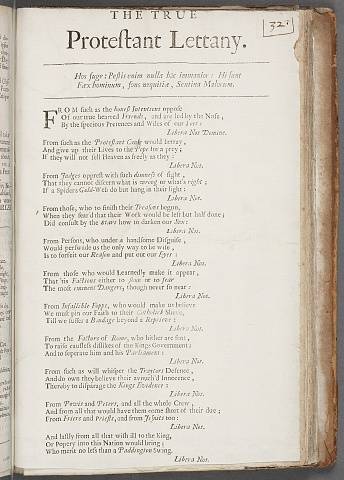 THE TRUE
32
Proteſtant Lettany.
Hos fuge: Peſtis enim nulla hac immanior: Hi ſunt
Fæx hominum, fons nequitiæ, Sentina Malorum.
FROM ſuch as the honeſt Intentions oppoſe
Of our true hearted Friends, and are led by the Noſe,
By the ſpecious Pretences and Wiles of our Foes:
Libera Nos Domine.
From ſuch as the Proteſtant Cauſe would betray,
And give up their Lives to the Pope for a prey;
If they will not ſell Heaven as freely as they:
Libera Nos.
From Judges oppreſt with ſuch dimneſs of ſight,
That they cannot diſcern what is wrong or what's right;
If a Spiders Gold-Web do but hang in their light:
Libera Nos.
From thoſe, who to finiſh their Treaſons begun,
When they fear'd that their Work would be left but half done;
Did conſult by the Stars how to darken our Sun:
Libera Nos.
From Perſons, who under a handſome Diſguiſe,
Would perſwade us the only way to be wiſe,
Is to forfeit our Reaſon and put out our Eyes:
Libera Nos.
From thoſe who would Learnedly make it appear,
That 'tis Factious either to ſhun or to fear
The moſt eminent Dangers, though never ſo near:
Libera Nos.
From Infallible Fopps, who would make us believe
We muſt pin our Faith to their Catholick Sleeve,
Till we ſuffer a Bondage beyond a Repreeve:
Libera Nos.
From the Factors of Rome, who hither are ſent,
To raiſe cauſleſs diſlikes of the Kings Government;
And to ſeperate him and his Parliament:
Libera Nos.
From ſuch as will whiſper the Traytors Defence,
And do own they believe their avouch'd Innocence,
Thereby to diſparage the Kings Evidence:
Libera Nos.
From Powis and Peters, and all the whole Crew,
And from all that would have them come ſhort of their due;
From Friers and Prieſts, and from Jeſuits too:
Libera Nos.
And laſtly from all that with ill to the King,
Or Popery into this Nation would bring;
Who merit no leſs than a Paddington Swing.
Libera Nos.